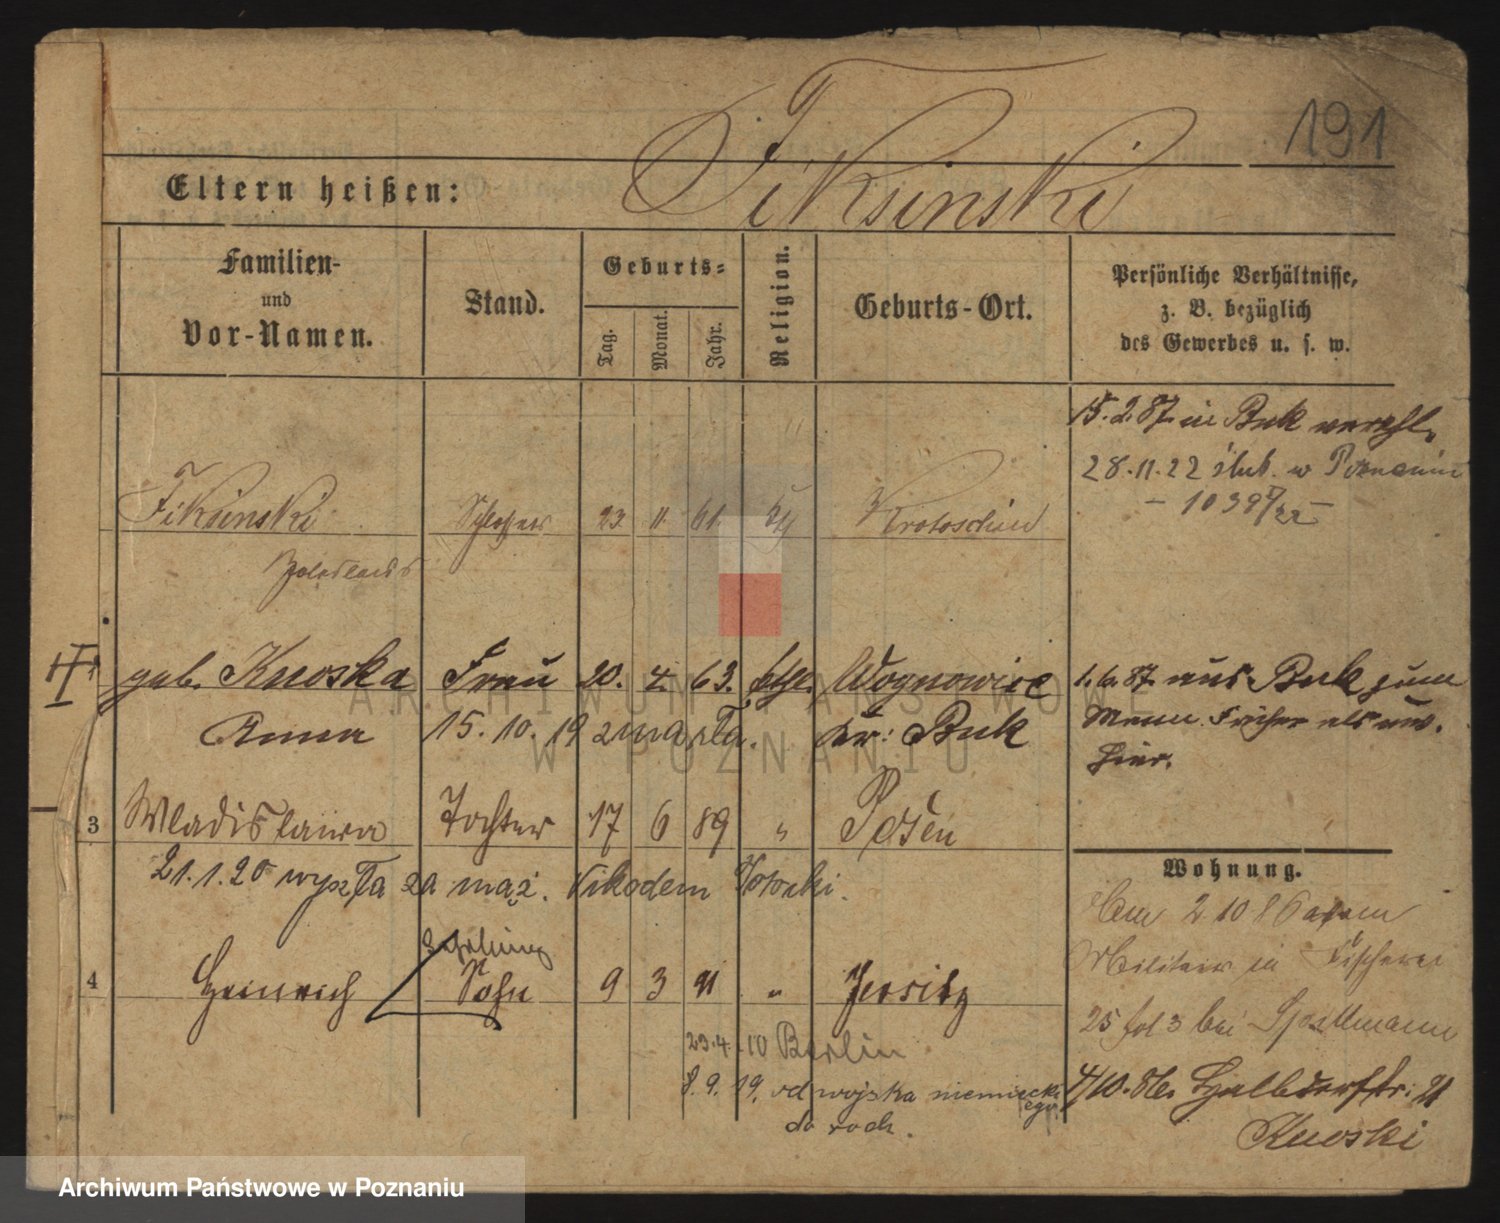 191
Eltern heißen: Fiksinski
Familien-
und
Vor-Namen.
Stand.
Geburts-
Tag.
Monat.
Jahr.
Religion.
Geburts-Ort.
Persönliche Verhältnisse,
z. B. bezüglich
des Gewerbes u. s. w.
15.2.87 in Buk verehl.
28.11.22 ślub. w Poznaniu
Fiksinski Schlosser 23 11 61 Krotoschin
geb. Knoska Frau 20. 4. 63. ktl. Wognowice
Anna 15.10.19 zmarła. Kr: Buk
1.6.87 aus Buk zum
Mann. Früher als unv.
hier.
3 Wladislawa Tochter 17 6 89 " Posen
21.1.20 wyszła za mąż. Nikodem
Wohnung.
2 10 86
Militair in Fischerei
25 bei
4/10.86. Halbdorfstr: 21
Knoski
4 Heinrich Sohn 9 3 91 " Jersitz
23.4.10 Berlin
8.9.19. od wojska niemieckiego
do rodz.
ARCHIWUM PAŃSTWOWE
W POZNANIU
Archiwum Państwowe w Poznaniu